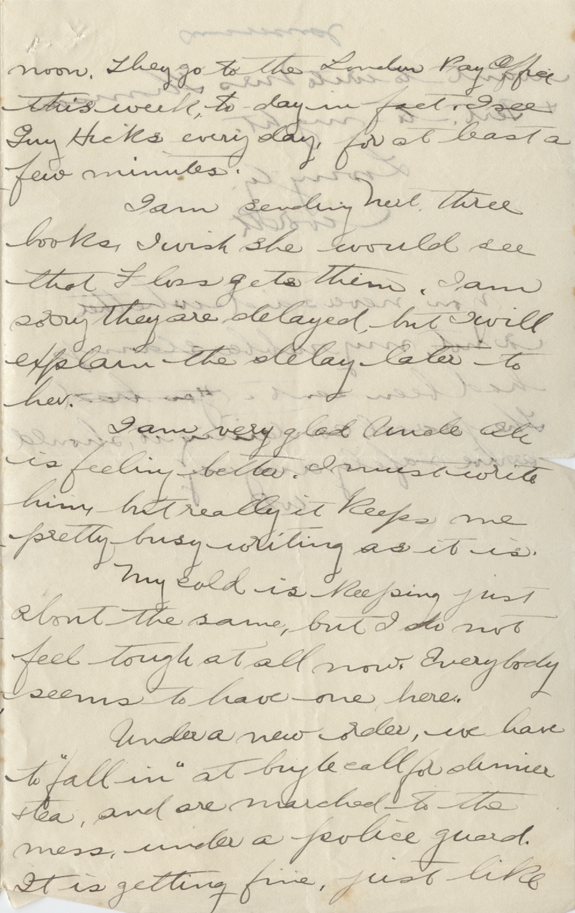 noon. They go to the London Pay Office
this week, to day in fact. I see
Guy Hicks every day, for at least a
few minutes.
I am sending Nell three
books, I wish she would see
that Floss gets them. I am
sorry they are delayed, but I will
explain the delay later to
her.
I am very glad Uncle
is feeling better. I must write
him, but really it keeps me
pretty busy writing as it is.
My cold is keeping just
about the same, but I do not
feel tough at all now. Everybody
seems to have one here.
Under a new order, we have
to "fall in" at bugle call for dinner
& tea, and are marched to the
mess, under a police guard.
It is getting fine, just like